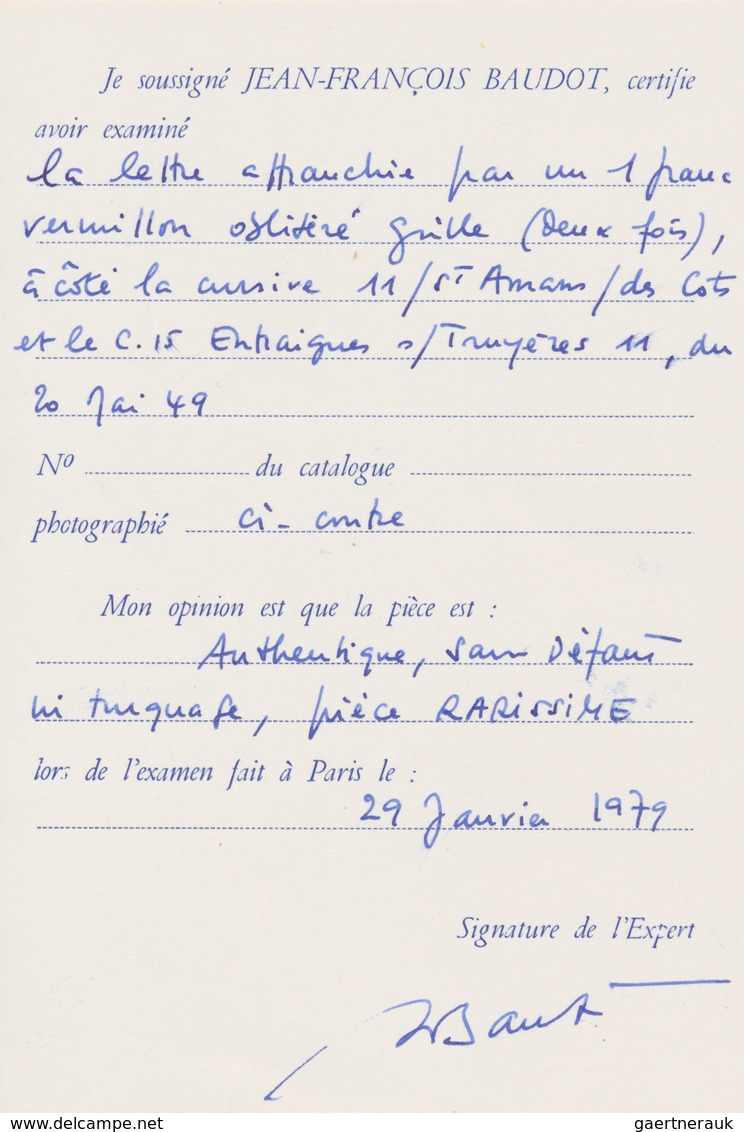 Je soussigné JEAN-FRANÇOIS BAUDOT, certifie
avoir examiné
la lettre affranchie par un 1 franc
vermillon oblitéré grille (deux fois),
à côté la cursive 11/ST Amans/des Cots
et le C.15 Entraigues s/Truyères 11, du
20 Mai 49
No du catalogue
photographié ci-contre
Mon opinion est que la pièce est :
Authentique, sans Défaut
ni truquage, pièce RARISSIME
lors de l'examen fait à Paris le :
29 Janvier 1979
Signature de l'Expert
delcampe.net
gaertnerauk